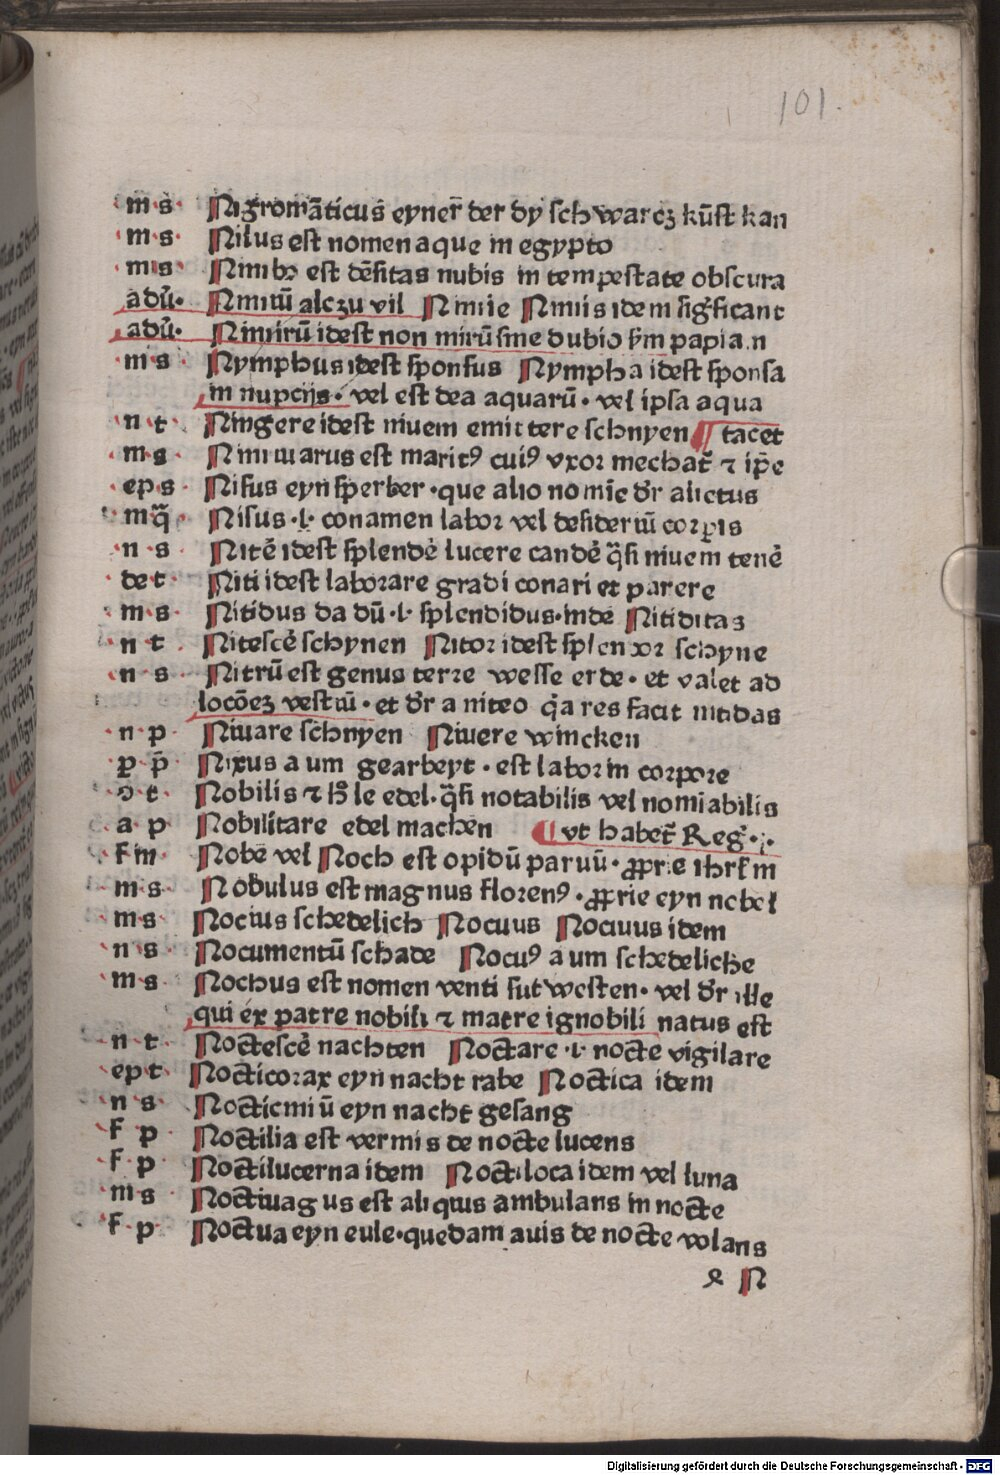 101.
m s Nigromāticus eyner̄ der dy schwarcz kūst kan
m s Nilus est nomen aque in egypto
m s Nimbꝰ est dēsitas nubis in tempestate obscura
adū. Nimiū alczu vil Nimie Nimis idem sigſicant
adū. Nimirū idest non mirū sine dubio papian
m s Nymphus idest sponsus Nympha idest sponsa
in nupcijs. vel est dea aquarū. vel ipsa aqua
n t Ningere idest niuem emittere schnyen ¶ tacet
m s est maritꝰ cuiꝰ vxor mechat̄ ⁊ ip̄e
ep s Nisus eyn sperber. que alio noīe dr̄ alictus
m q̄ Nisus .i. conamen labor vel desideriū corꝑis
n s Nitē idest splendē lucere candē q̄si niuem tenē
de t Niti idest laborare gradi conari et parere
m s Nitidus da dū .i. splendidus. inde Nitiditas
n t Nitescē schynen Nitor idest splendor schyne
n s Nitrū est genus terre wesse erde. et valet ad
locōez vestiū. et dr̄ a niteo q̄a res facit nitidas
n p Niuare schnyen Niuere wincken
p p̄ Nixus a um gearbeyt. est labor in corpore
ɔ t Nobilis ⁊ le edel. q̄si notabilis vel nomiabilis
a p Nobilitare edel machen ¶ vt habet̄ Reḡ.
f m Nobe vel Noch est opidū paruū. ꝓprie ihrl̄m
m s Nobulus est magnus florenꝰ. ꝓprie eyn nebel
m s Nocius schedelich Nocuus Nociuus idem
n s Nocumentū schade Nocuꝰ a um schedeliche
m s Nochus est nomen venti sutwesten. vel dr̄ ille
qui ex patre nobili ⁊ matre ignobili natus est
n t Noctescē nachten Noctare .i. nocte vigilare
ep t Nocticorax eyn nacht rabe Noctica idem
n s Nocticiniū eyn nacht gesang
f p Noctilia est vermis de nocte lucens
f p Noctilucerna idem Noctiloca idem vel luna
m s Noctiuagus est aliquis ambulans in nocte
f p Noctua eyn eule. quedam auis de nocte volans
N
Digitalisierung gefördert durch die Deutsche Forschungsgemeinschaft - DFG